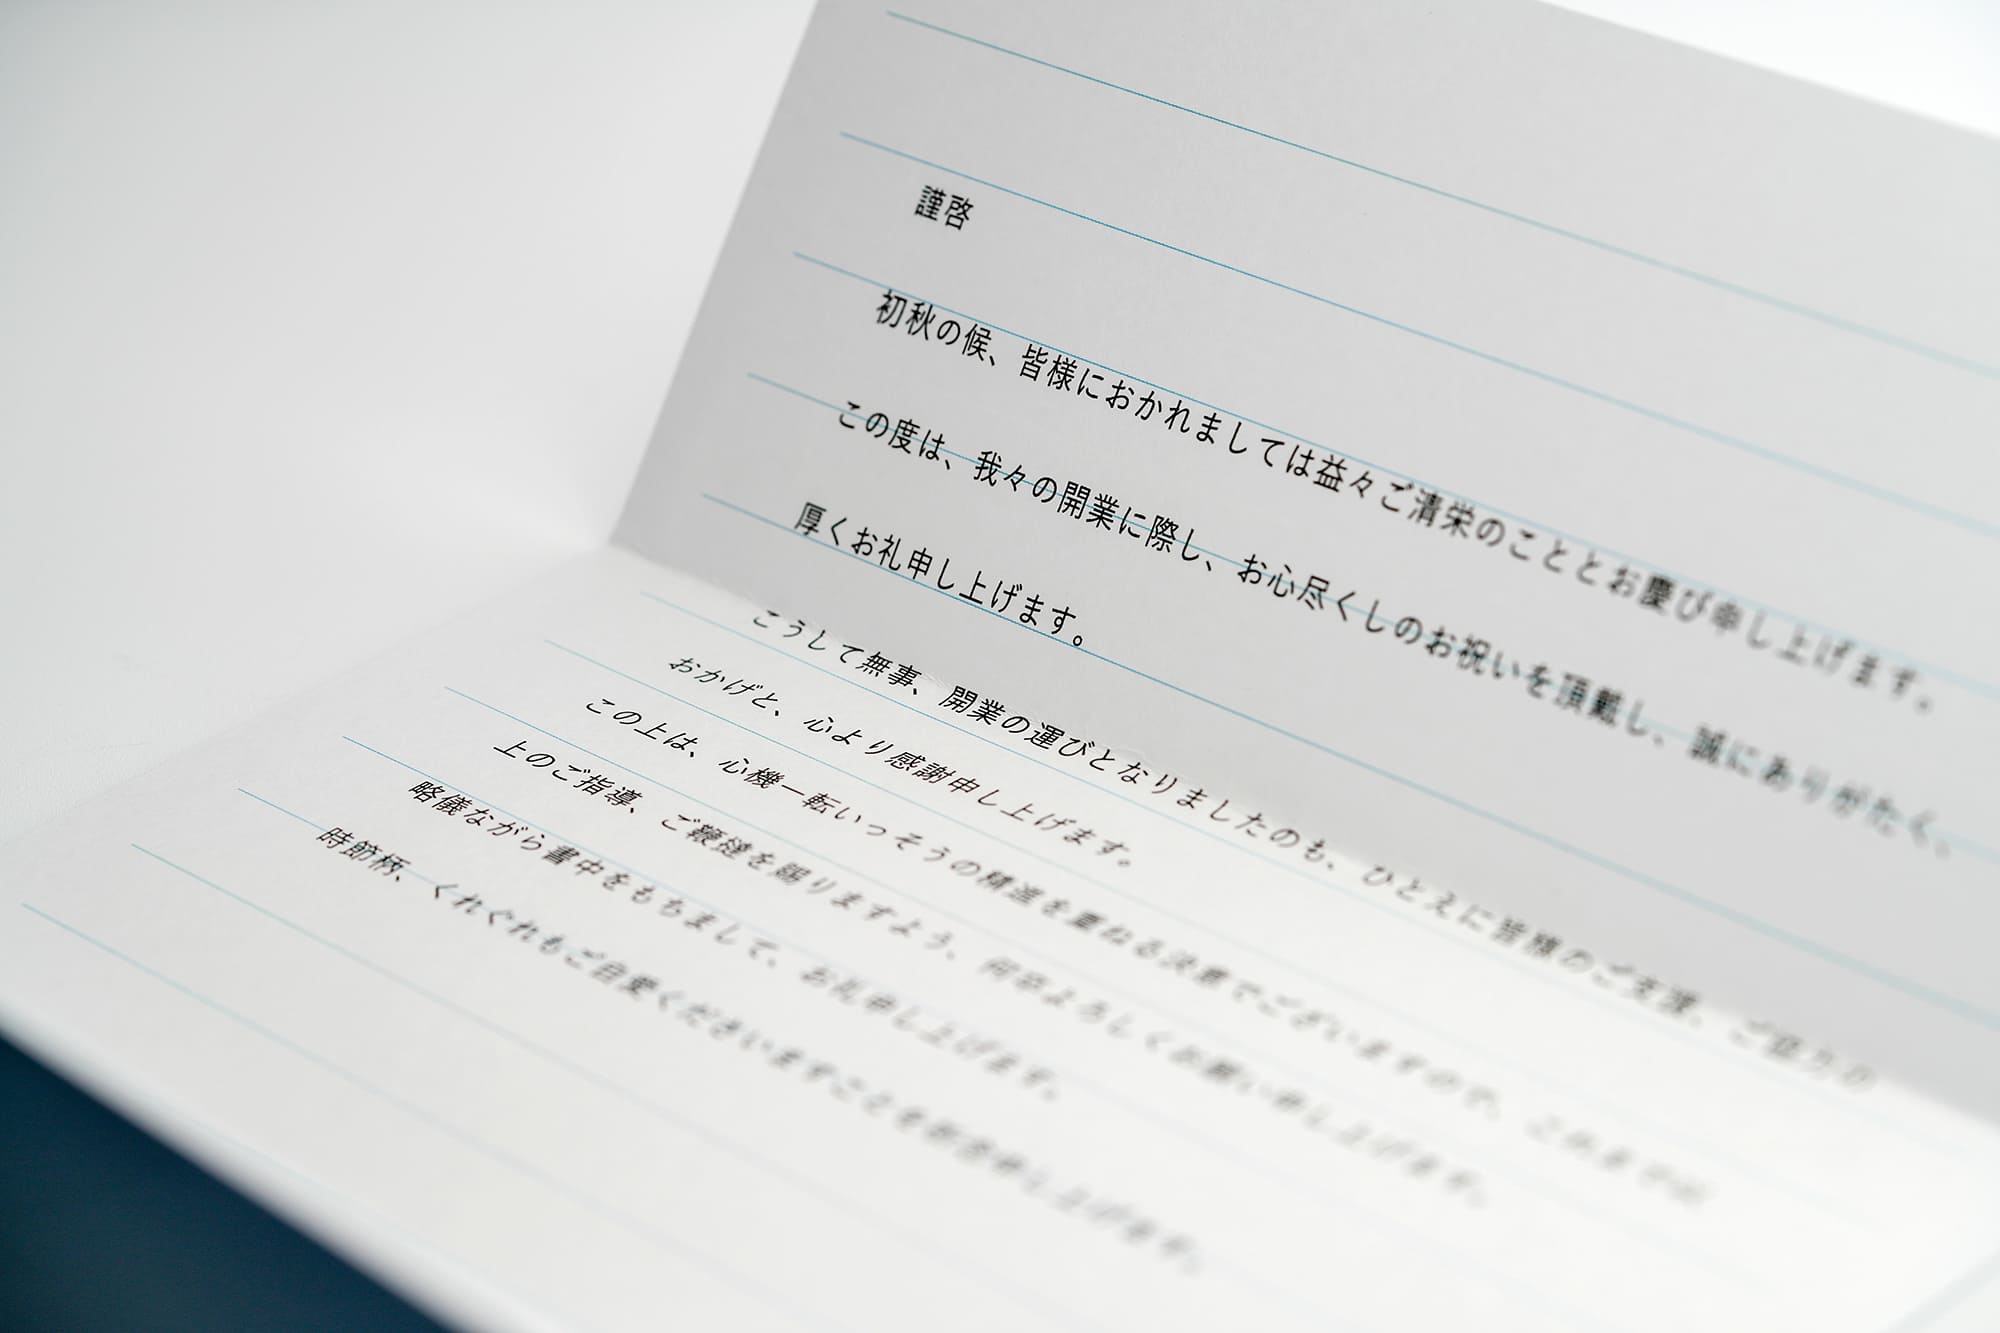 謹啓
初秋の候、皆様におかれましては益々ご清栄のこととお慶び申し上げます。
この度は、我々の開業に際し、お心尽くしのお祝いを頂戴し、誠にありがたく、
厚くお礼申し上げます。
こうして無事、開業の運びとなりましたのも、ひとえに皆様のご支援、ご協力の
おかげと、心より感謝申し上げます。
この上は、心機一転いっそうの精進を重ねる決意でございますので、これまで以
上のご指導、ご鞭撻を賜りますよう、何卒よろしくお願い申し上げます。
略儀ながら書中をもちまして、お礼申し上げます。
時節柄、くれぐれもご自愛くださいますことを祈念申し上げます。